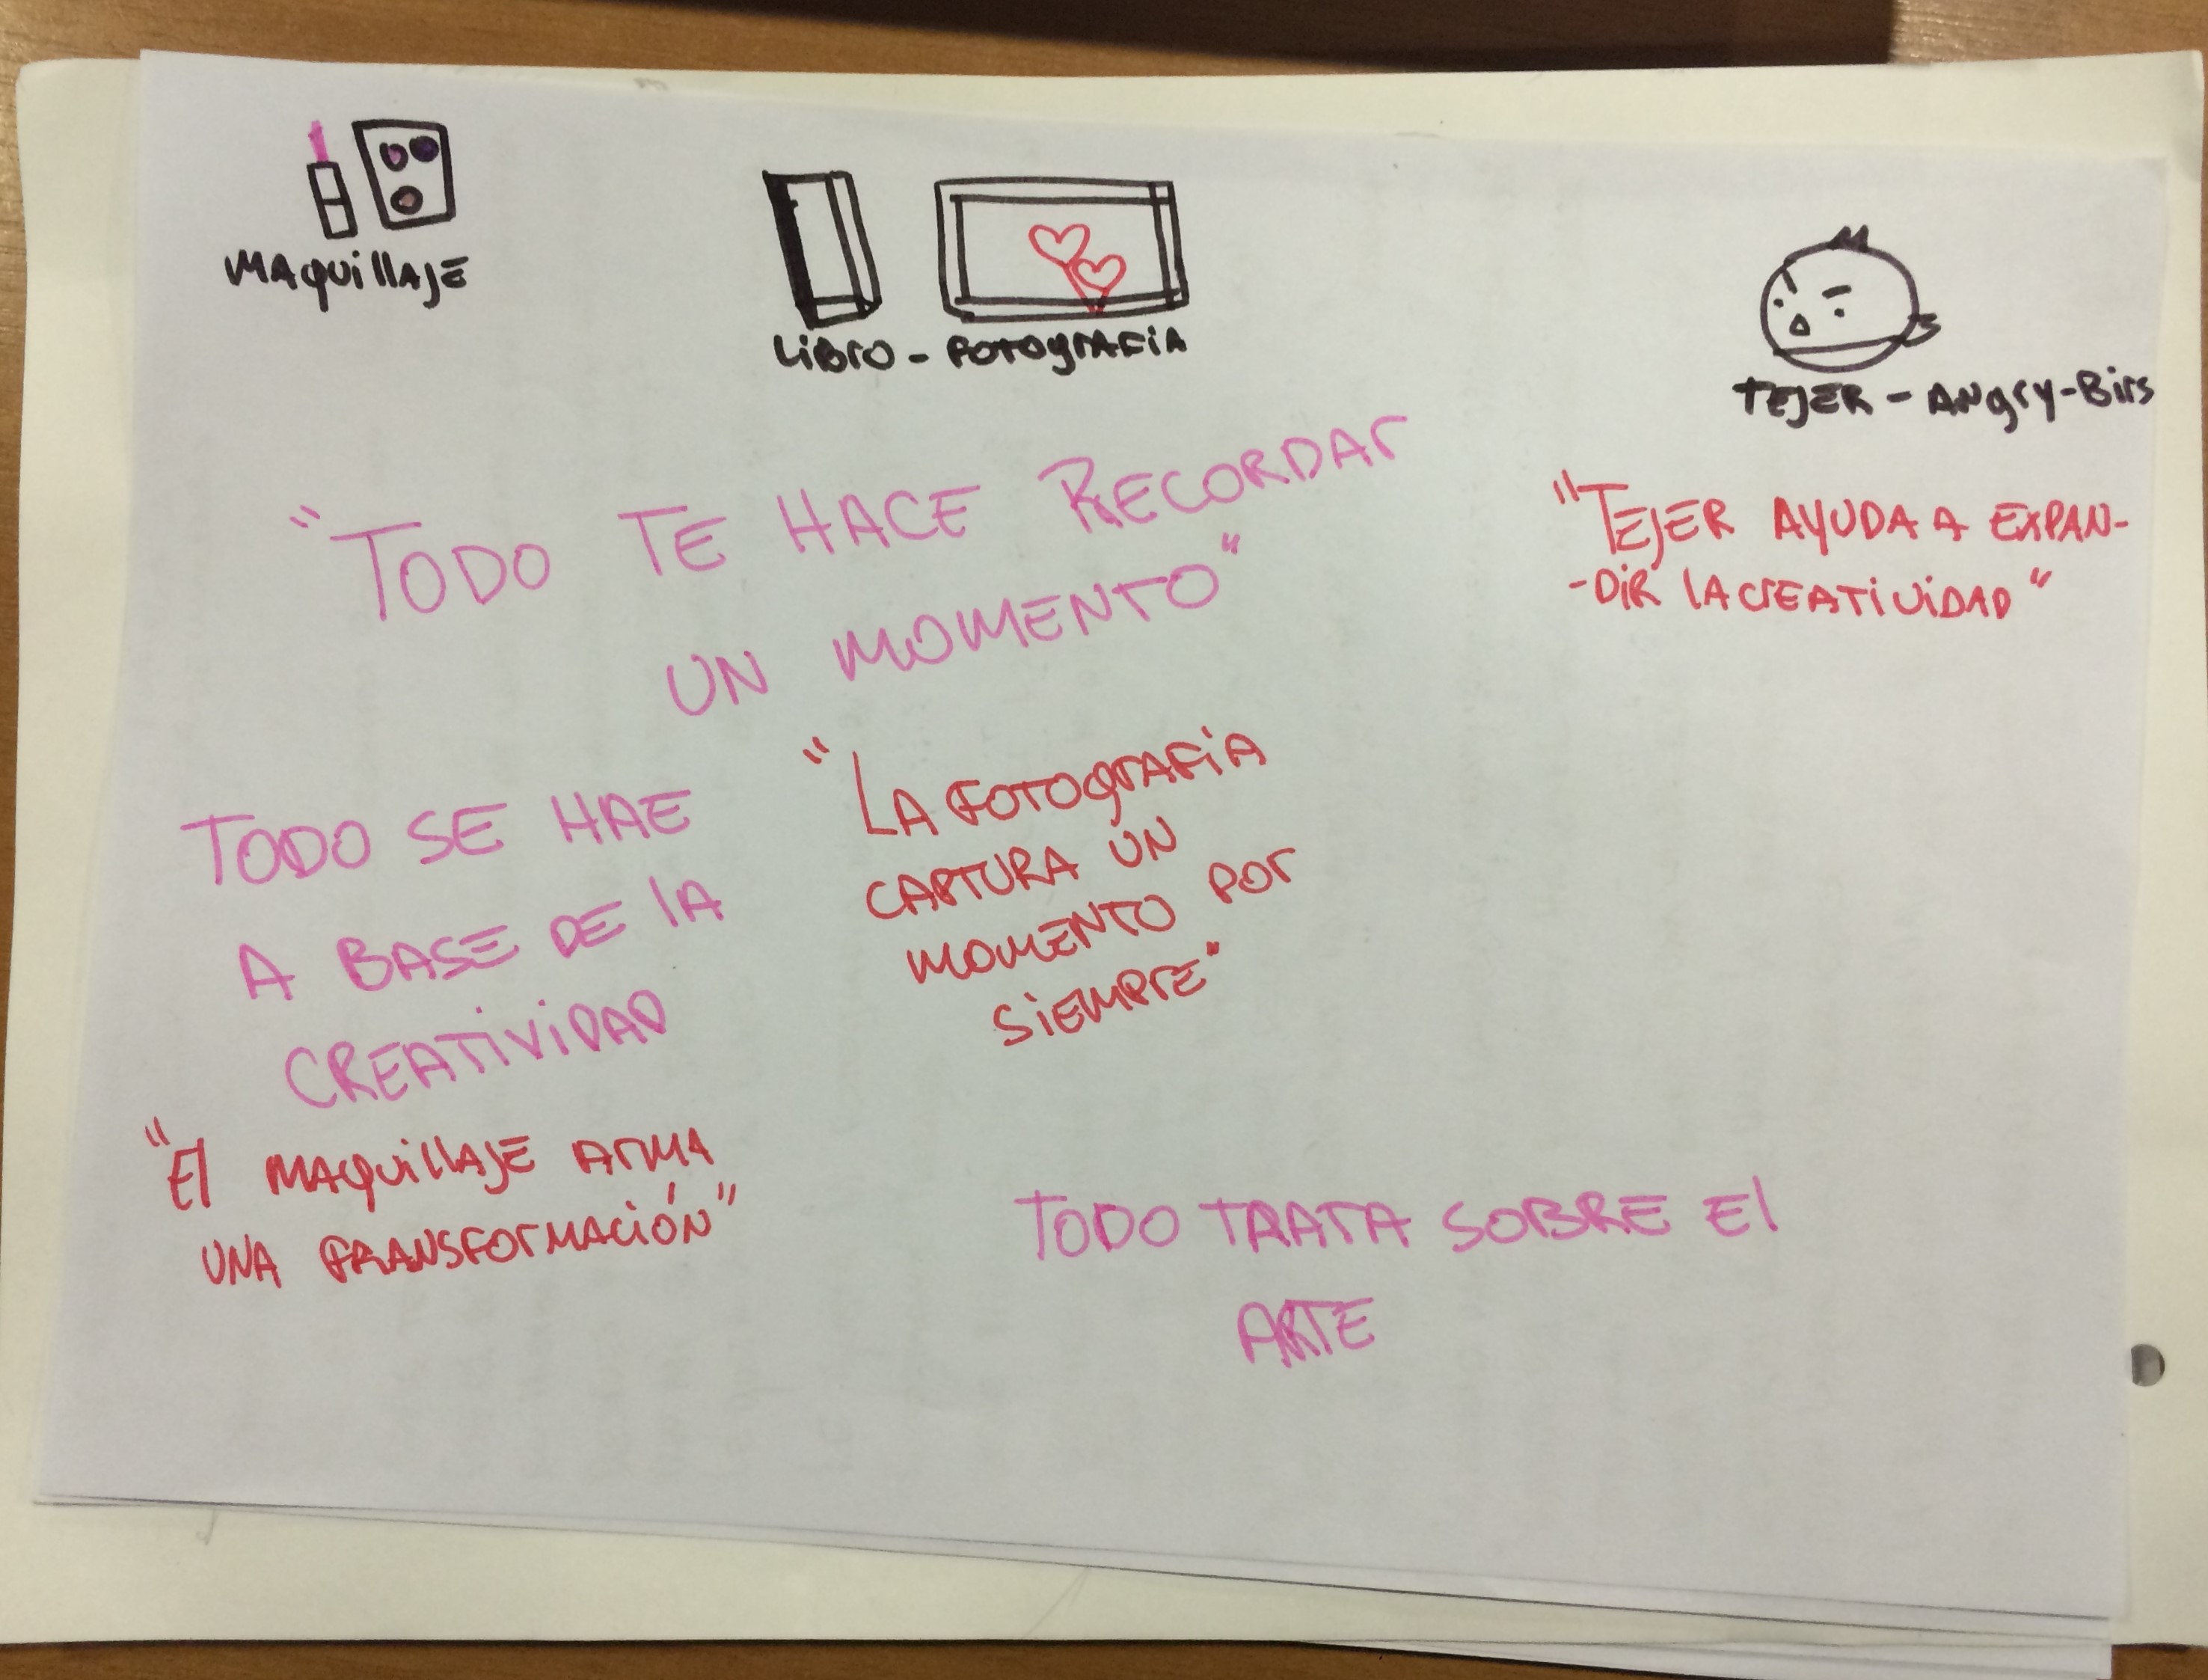 MAquillAJE
LiBro - FOTOgrAFiA
TEJER - ANgry-Birs
"TODO TE HACE RECORDAr
UN MOMENTO"
"TEJER AYUDA A EXPAN-
-DiR lA CrEATiViDAD"
TODO SE HAE
A BASE DE lA
CREATiViDAD
"LA FOTOgrAFiA
CAPTURA UN
MOMENTO POr
SiEMPrE"
"El MAquillAJE ArMA
UNA TRANSFOrMACiÓN"
TODO TRATA SOBRE El
ARTE